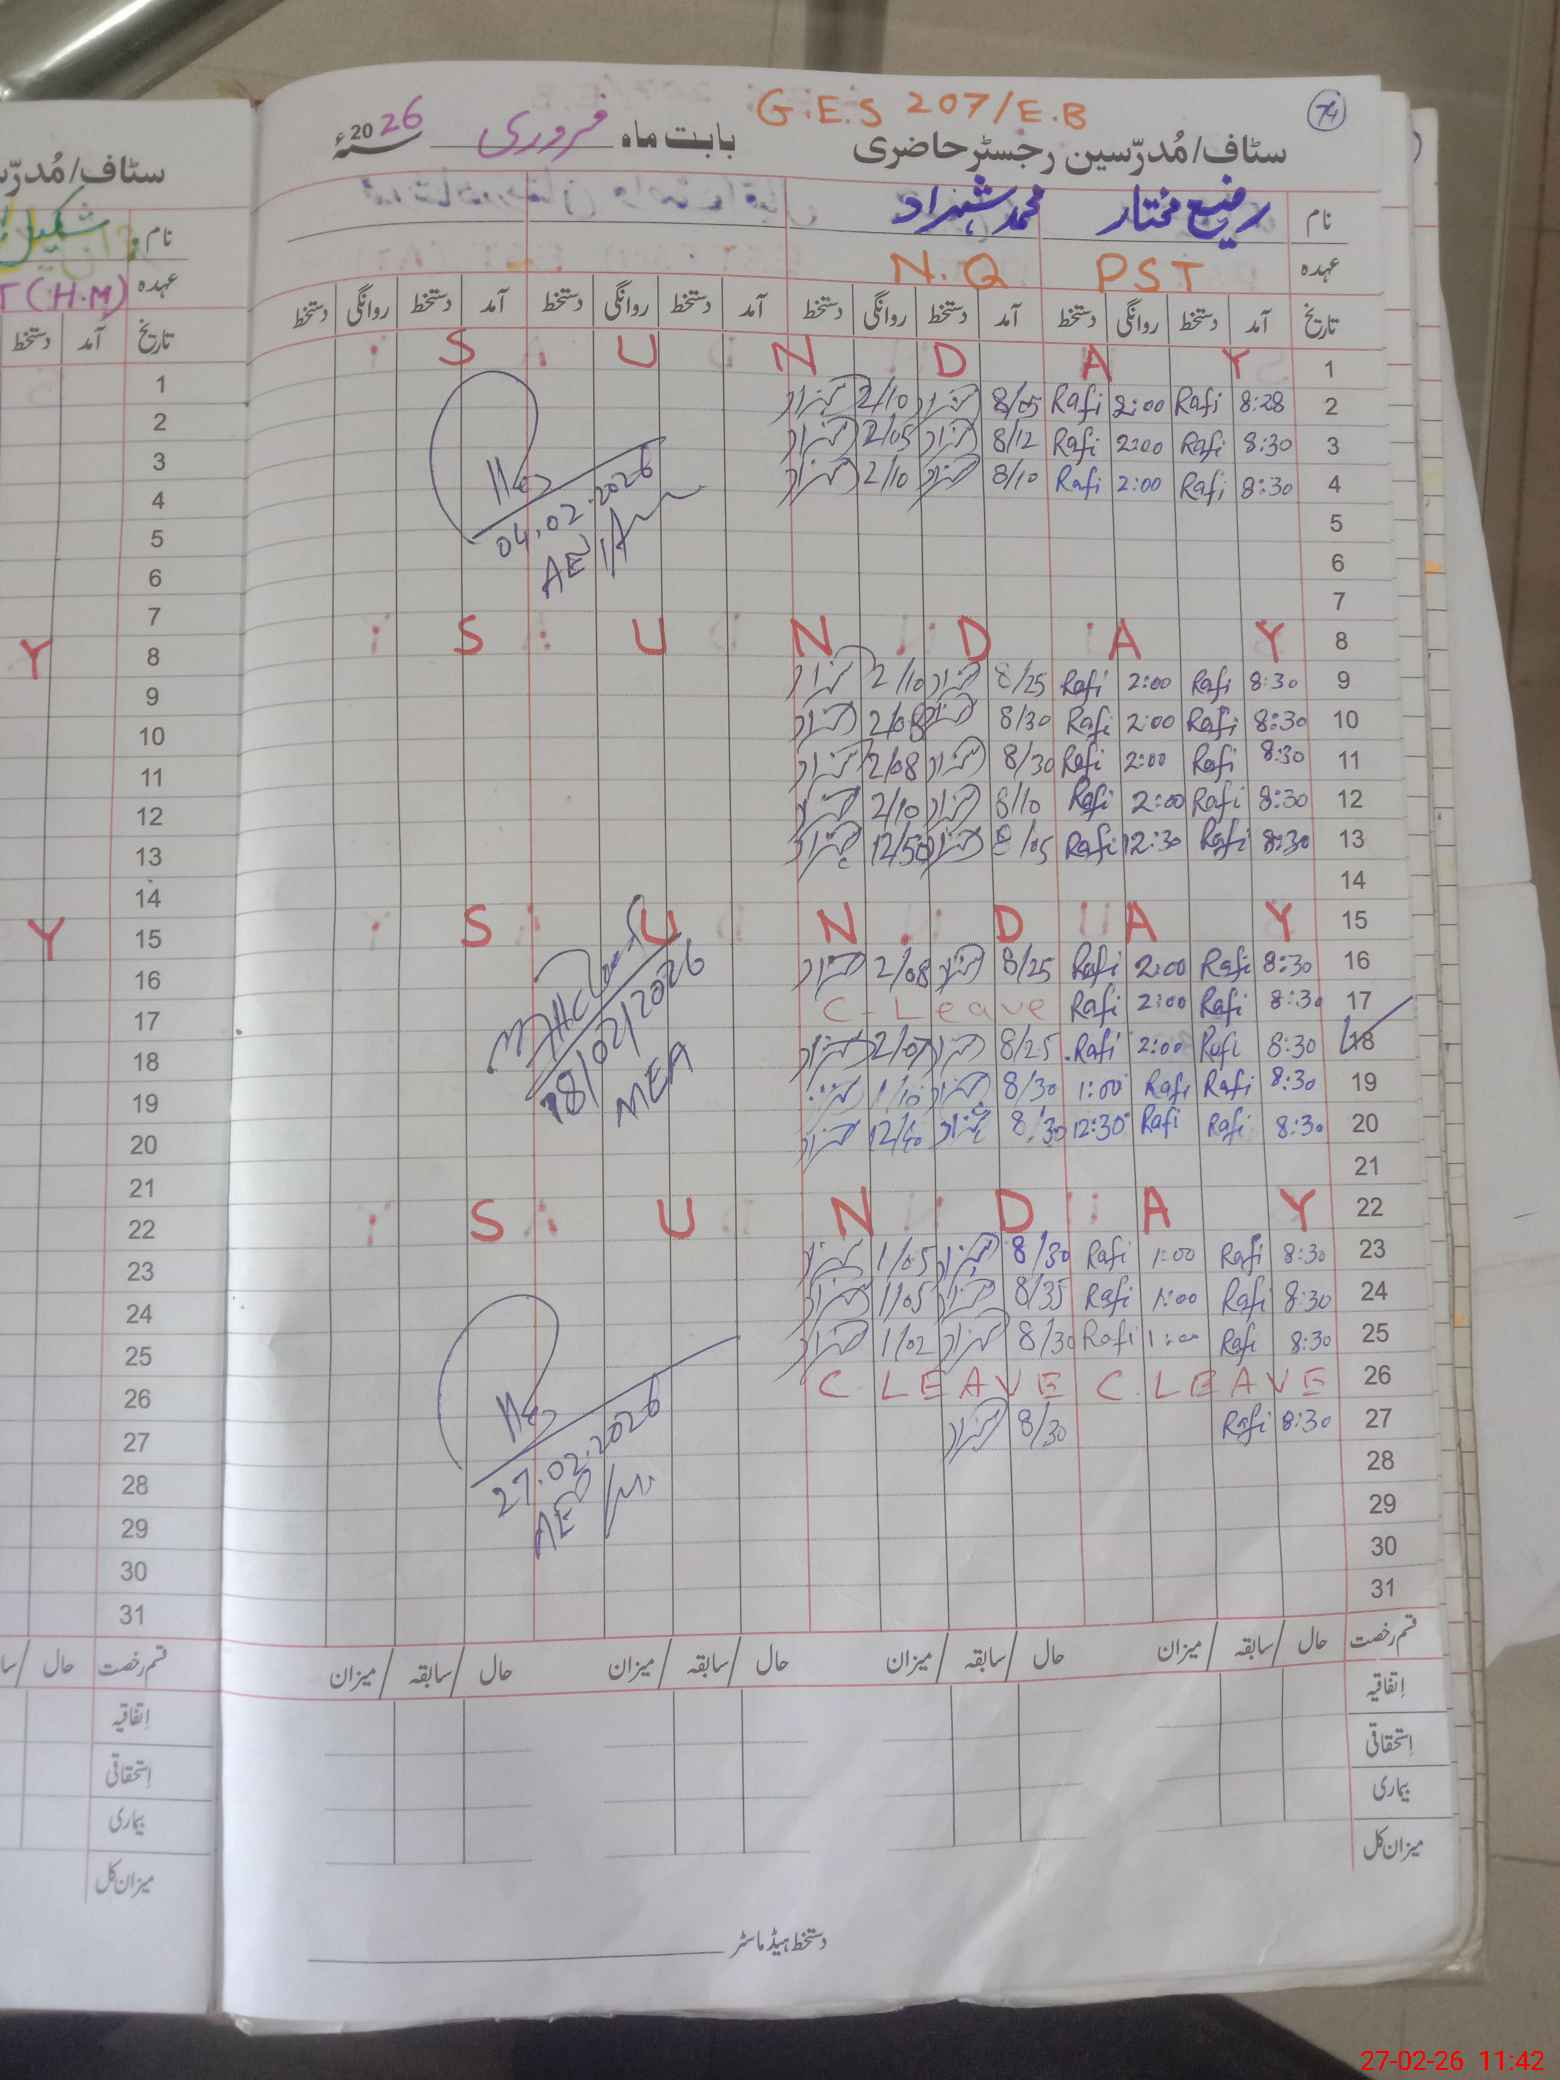 G.E.S 207/E.B
74
سٹاف/مُدرّسین رجسٹر حاضری بابت ماہ فروری 2026ء
نام رفیع مختار محمد شہزاد
عہدہ PST N.Q
تاریخ آمد دستخط روانگی دستخط آمد دستخط روانگی دستخط آمد دستخط روانگی دستخط آمد دستخط روانگی دستخط
1 S U N D A Y
2 8:28 Rafi 2:00 Rafi 8/05 شہزاد 2/10 شہزاد
3 8:30 Rafi 2:00 Rafi 8/12 شہزاد 2/05 شہزاد
4 8:30 Rafi 2:00 Rafi 8/10 شہزاد 2/10 شہزاد
04.02.2026
AEO
5
6
7
8 S U N D A Y
9 8:30 Rafi 2:00 Rafi 8/25 شہزاد 2/10 شہزاد
10 8:30 Rafi 2:00 Rafi 8/30 شہزاد 2/08 شہزاد
11 8:30 Rafi 2:00 Rafi 8/30 شہزاد 2/08 شہزاد
12 8:30 Rafi 2:00 Rafi 8/10 شہزاد 2/10 شہزاد
13 8:30 Rafi 12:30 Rafi 8/05 شہزاد 12/50 شہزاد
14
15 S U N D A Y
16 8:30 Rafi 2:00 Rafi 8/25 شہزاد 2/08 شہزاد
17 8:30 Rafi 2:00 Rafi C-Leave
18 8:30 Rafi 2:00 Rafi 8/25 شہزاد 2/07 شہزاد
18/02/2026
MEA
19 8:30 Rafi Rafi 1:00 8/30 شہزاد 1/10 شہزاد
20 8:30 Rafi Rafi 12:30 8/30 شہزاد 12/40 شہزاد
21
22 S U N D A Y
23 8:30 Rafi 1:00 Rafi 8/30 شہزاد 1/05 شہزاد
24 8:30 Rafi 1:00 Rafi 8/35 شہزاد 1/05 شہزاد
25 8:30 Rafi 1:00 Rafi 8/30 شہزاد 1/02 شہزاد
26 C LEAVE C.LEAVE
27 8:30 Rafi 8/30 شہزاد
27.02.2026
AEO
28
29
30
31
قسم رخصت حال/سابقہ/میزان حال/سابقہ/میزان حال/سابقہ/میزان حال/سابقہ/میزان
اِتفاقیہ
اِستحقاقی
بیماری
میزان کل
دستخط ہیڈ ماسٹر
سٹاف/مُدرّ
نام شکیل
عہدہ T (H.M)
تاریخ آمد دستخط
1
2
3
4
5
6
7
8 Y
9
10
11
12
13
14
15 Y
16
17
18
19
20
21
22
23
24
25
26
27
28
29
30
31
قسم رخصت حال/سا
اِتفاقیہ
اِستحقاقی
بیماری
میزان کل
27-02-26 11:42